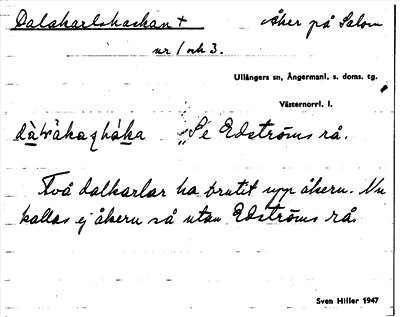 Dalakarlshackan + Åker på Salom
nr 1 och 3.
Ullångers sn, Ångermanl. s. doms. tg.
Västernorrl. l.
Se Edströms rå.
Två dalkarlar ha brutit upp åkern. Nu
kallas ej åkern så utan Edströms rå
Sven Hiller 1947